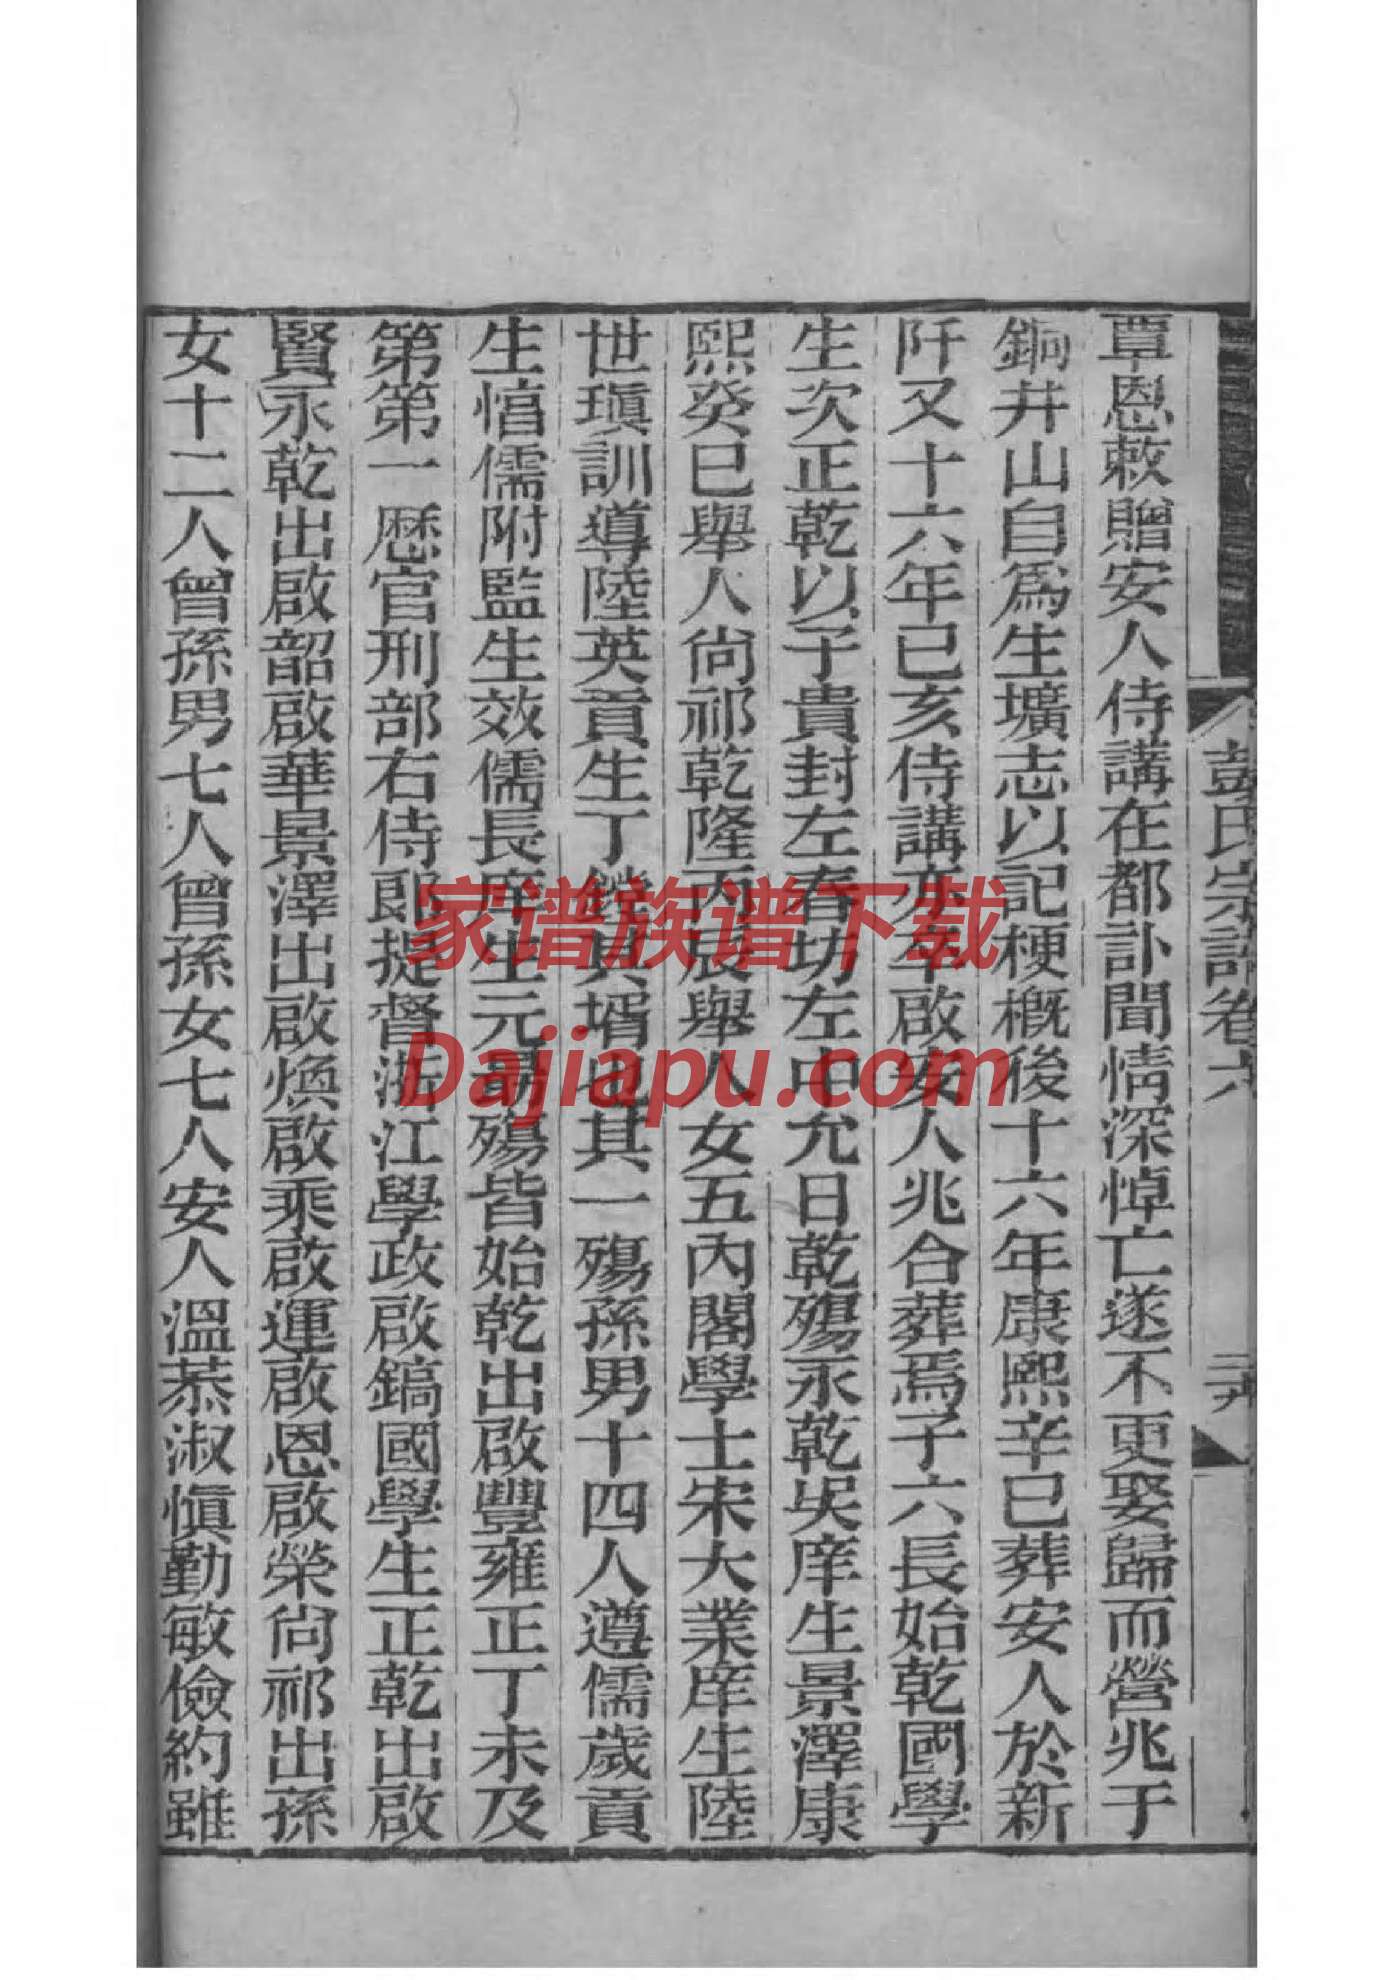 覃恩敕贈安人侍講在都訃聞情深悼亡遂不更娶歸而營兆于
銅井山自爲生壙志以記梗槪後十六年康熙辛巳葬安人於新
阡又十六年己亥侍講亦卒啟安人兆合葬焉子六長始乾國學
生次正乾以子貴封左春坊左中允日乾殤永乾吳庠生景澤康
熙癸巳舉人尙祁乾隆丙辰舉人女五內閣學士宋大業庠生陸
世瑱訓導陸英貢生丁其壻也其一殤孫男十四人遵儒歲貢
生愭儒附監生效儒長庠生元勗殤皆始乾出啟豐雍正丁未及
第第一歷官刑部右侍郎提督浙江學政啟鎬國學生正乾出啟
賢永乾出啟韶啟華景澤出啟煥啟乘啟運啟恩啟榮尙祁出孫
女十二人曾孫男七人曾孫女七人安人溫恭淑愼勤敏儉約雖
彭氏宗譜卷六
家谱族谱下载
Dajiapu.com